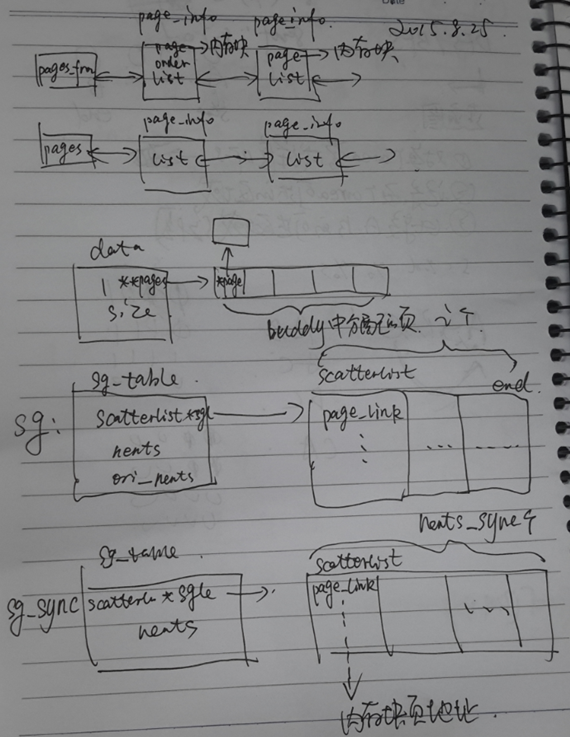 2015.8.25
page_info page_info
pages_frm page order list → 内存块 page list → 内存块
page_info page_info
pages list list
data
**pages size *page
buddy中分配的页
i个
sg_table scatterlist end
sg: scatterlist *sgl page_link
nents
ori_nents
nents_sync个
sg_table scatterlist
sg_sync scatterli *sgl page_link
nents
内存块页地址